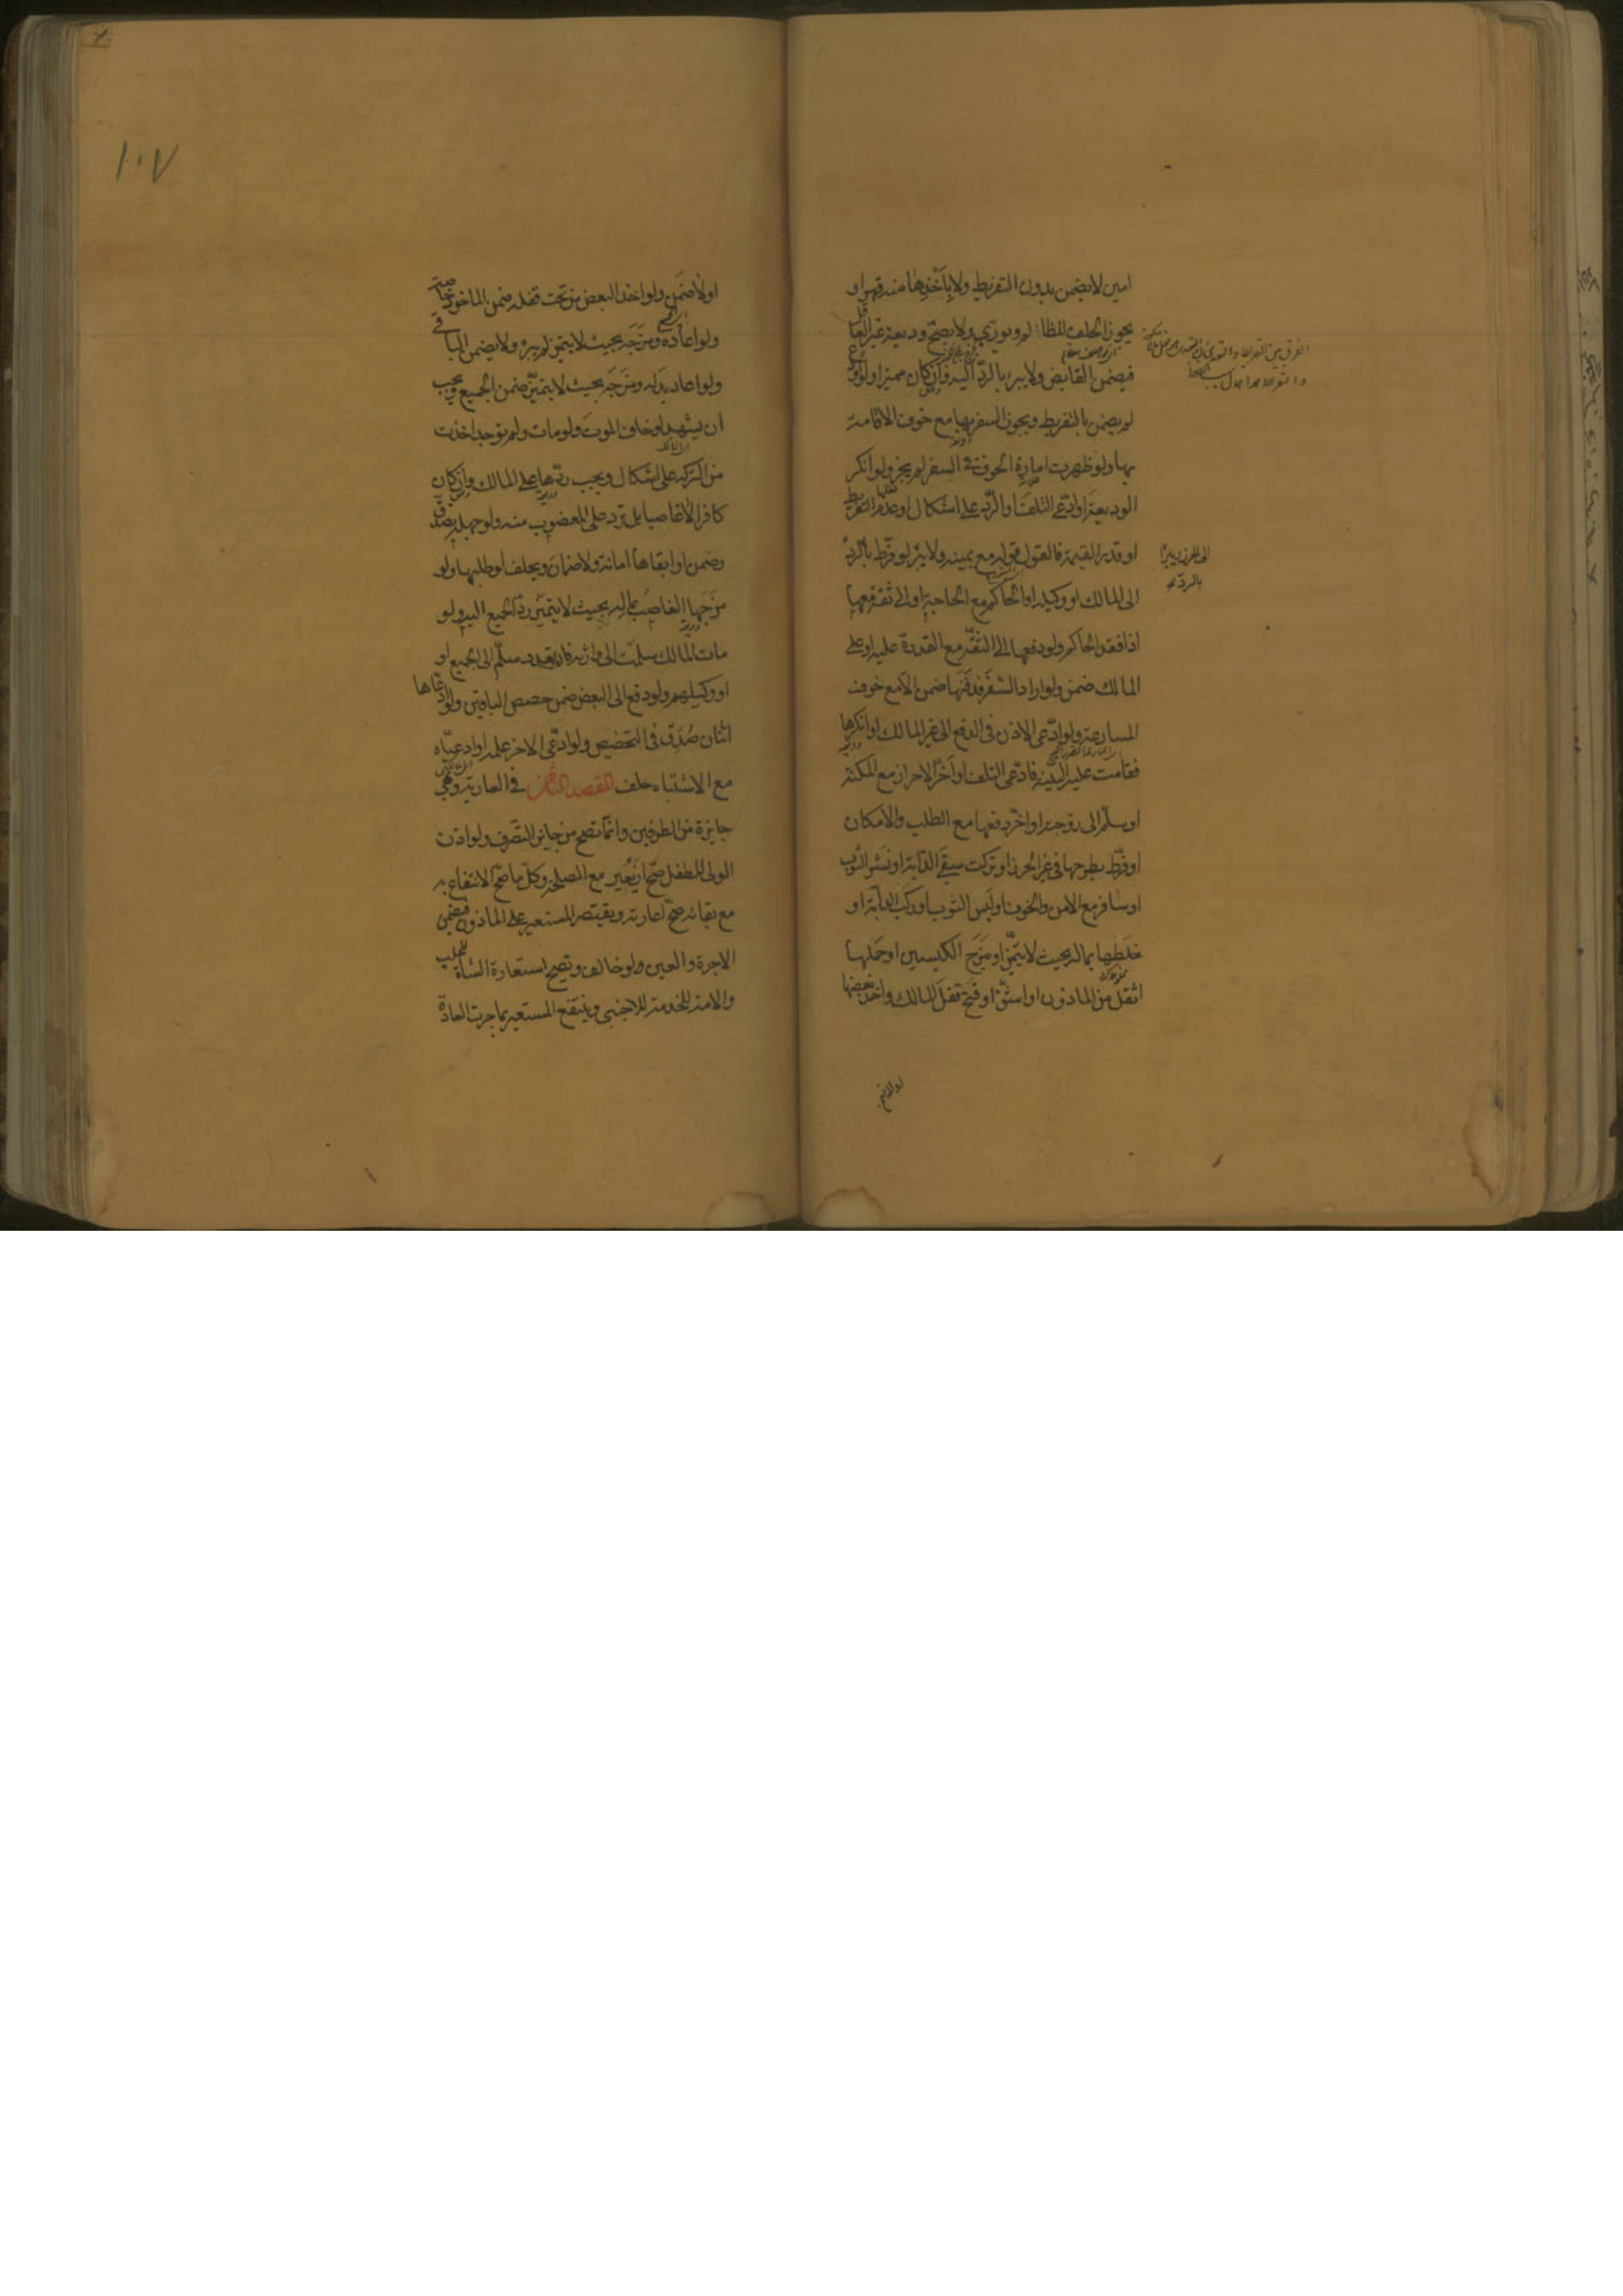 امين لا يضمن بدون التفريط ولا باخذها منه قهرا و
يجوز الحلف للظالم ويورّي ولا يصحّ وديعة غير العاقل
فيضمن القابض ولا يبرء بالردّ اليه وان كان مميزا ولو اودع
لم يضمن بالتفريط ويجوز السفر بها مع خوف الاقامة
بها ولو ظهرت امارة الخوف في السفر لم يجز ولو انكر
الوديعة او ادّعى التلف او الردّ على اشكال او عدم التفريط
او قدر القيمة فالقول قوله مع يمينه ولا يبرء لو فرّط بالردّ
الى المالك او وكيله او الحاكم مع الحاجة او الى ثقة
اذا فقد الحاكم ولو دفعها الى الثقة مع القدرة عليه او على
المالك ضمن ولو اراد السفر فدفنها ضمن الا مع خوف
المسارعة ولو ادّعى الاذن في الدفع الى غير المالك او انكرها
فقامت عليه البيّنة فادّعى التلف او اخّر الاحراز مع المكنة
او سلّم الى زوجته او اخّر دفعها مع الطلب والامكان
او فرّط بطرحها في غير الحرز او تركت سقي الدّابة او نشر الثوب
او سافر مع الامن والخوف او لبس الثوب او ركب الدآبة او
خلطها بماله بحيث لا يتميّز او مزج الكيسين او حملها
اثقل من الماذون او اشقّ او فتح قفل المالك واخذ بعضها
الى الحرز
بالردّ
اولا ضمن ولو اخذ البعض من تحت قفله ضمن الماخوذ خاصة
ولو اعاده ومزجه بحيث لا يتميز لم يبرء ولا يضمن الباقي
ولو اعاد بدله ومزجه بحيث لا يتميّز ضمن الجميع ويجب
ان يشهد لو خاف الموت ولو مات ولم توجد اخذت
من التركة على اشكال ويجب ردّها على المالك وان كان
كافرا لا غاصبا بل ترد على المغصوب منه ولو جهل تصدّق
وضمن او ابقاها امانة ولا ضمان ويحلف لو طلبها ولو
مزجها الغاصب بماله بحيث لا يتميّز ردّ الجميع اليه ولو
مات المالك سلّمت الى وارثه فان تعدد سلّم الى الجميع او
او وكيلهم ولو دفع الى البعض ضمن حصص الباقين ولو ادّعاها
اثنان صُدّق في التخصيص ولو ادّعى الاخر علمه او ادعياه
مع الاشتباه حلف المقصد الثاني في العارية وهي
جايزة من الطرفين وانّما تصح من جايز التصّرف ولو اذن
الولي للطفل صحّ ان يعير مع المصلحة وكلّ ما صحّ الانتفاع به
مع بقائه صحّ اعارته ويقتصر المستعير على الماذون فيضمن
الاجرة والعين ولو خالف وتصح استعارة الشاة للحلب
والامة للخدمة للاجنبي وينتفع المستعير بما جرت العادة
١٠٧